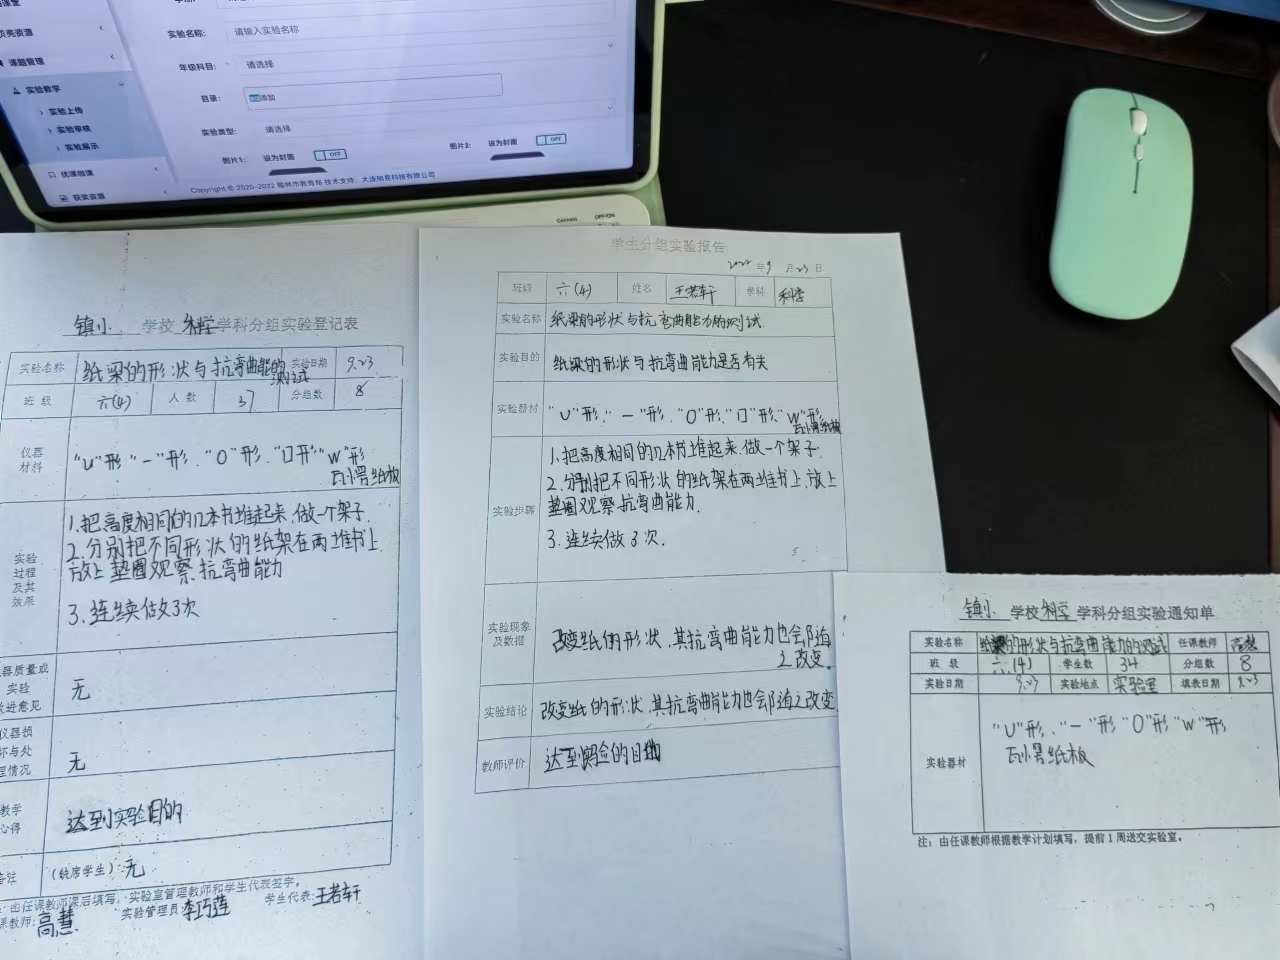 贝壳资源
课题管理
实验教学
实验上传
实验审核
实验展示
优课微课
获奖资源
实验名称: 请输入实验名称
年级科目: 请选择
目录: 添加
实验类型: 请选择
图片1: 设为封面 OFF
图片2: 设为封面 OFF
Copyright © 2020-2022 榆林市教育局 技术支持:
Connect OFF/ON
镇小 学校 科学 学科分组实验登记表
实验名称 纸梁的形状与抗弯曲能的测试 实验日期 9.23
班 级 六(4) 人 数 37 分组数 8
仪器材料 "U"形 "一"形."O"形."口形""W"形
瓦小骨纸板
实验过程及其效果
1.把高度相同的几本书堆起来.做一个架子.
2.分别把不同形状的纸架在两堆书上.
放上垫圈观察.抗弯曲能力
3.连续做3次
器质量或
实验
进意见 无
仪器损
坏与处
理情况 无
教学
心得 达到实验目的
备注 (缺席学生) 无
由任课教师课后填写,实验室管理教师和学生代表签字。
课教师: 高慧 实验管理员: 李巧莲 学生代表: 王若轩
学生分组实验报告
2022 年 9 月 23 日
班级 六(4) 姓名 王若轩 学科 科学
实验名称 纸梁的形状与抗弯曲能力的测试
实验目的 纸梁的形状与抗弯曲能力是否有关
实验器材 "U"形."一"形."O"形."口"形."W"形
瓦小骨纸板
实验步骤
1.把高度相同的几本书堆起来.做一个架子.
2.分别把不同形状的纸架在两堆书上.放上
垫圈观察.抗弯曲能力.
3.连续做3次.
实验现象及数据 改变纸的形状.其抗弯曲能力也会随
之改变.
实验结论 改变纸的形状.其抗弯曲能力也会随之改变
教师评价 达到实验的目的
镇小 学校 科学 学科分组实验通知单
实验名称 纸梁的形状与抗弯曲能力的测试 任课教师 高慧
班 级 六.(4) 学生数 34 分组数 8
实验日期 9.23 实验地点 实验室 填表日期 9.23
实验器材 "U"形."一"形"O"形"W"形
瓦小骨纸板
注: 由任课教师根据教学计划填写, 提前1周送交实验室。